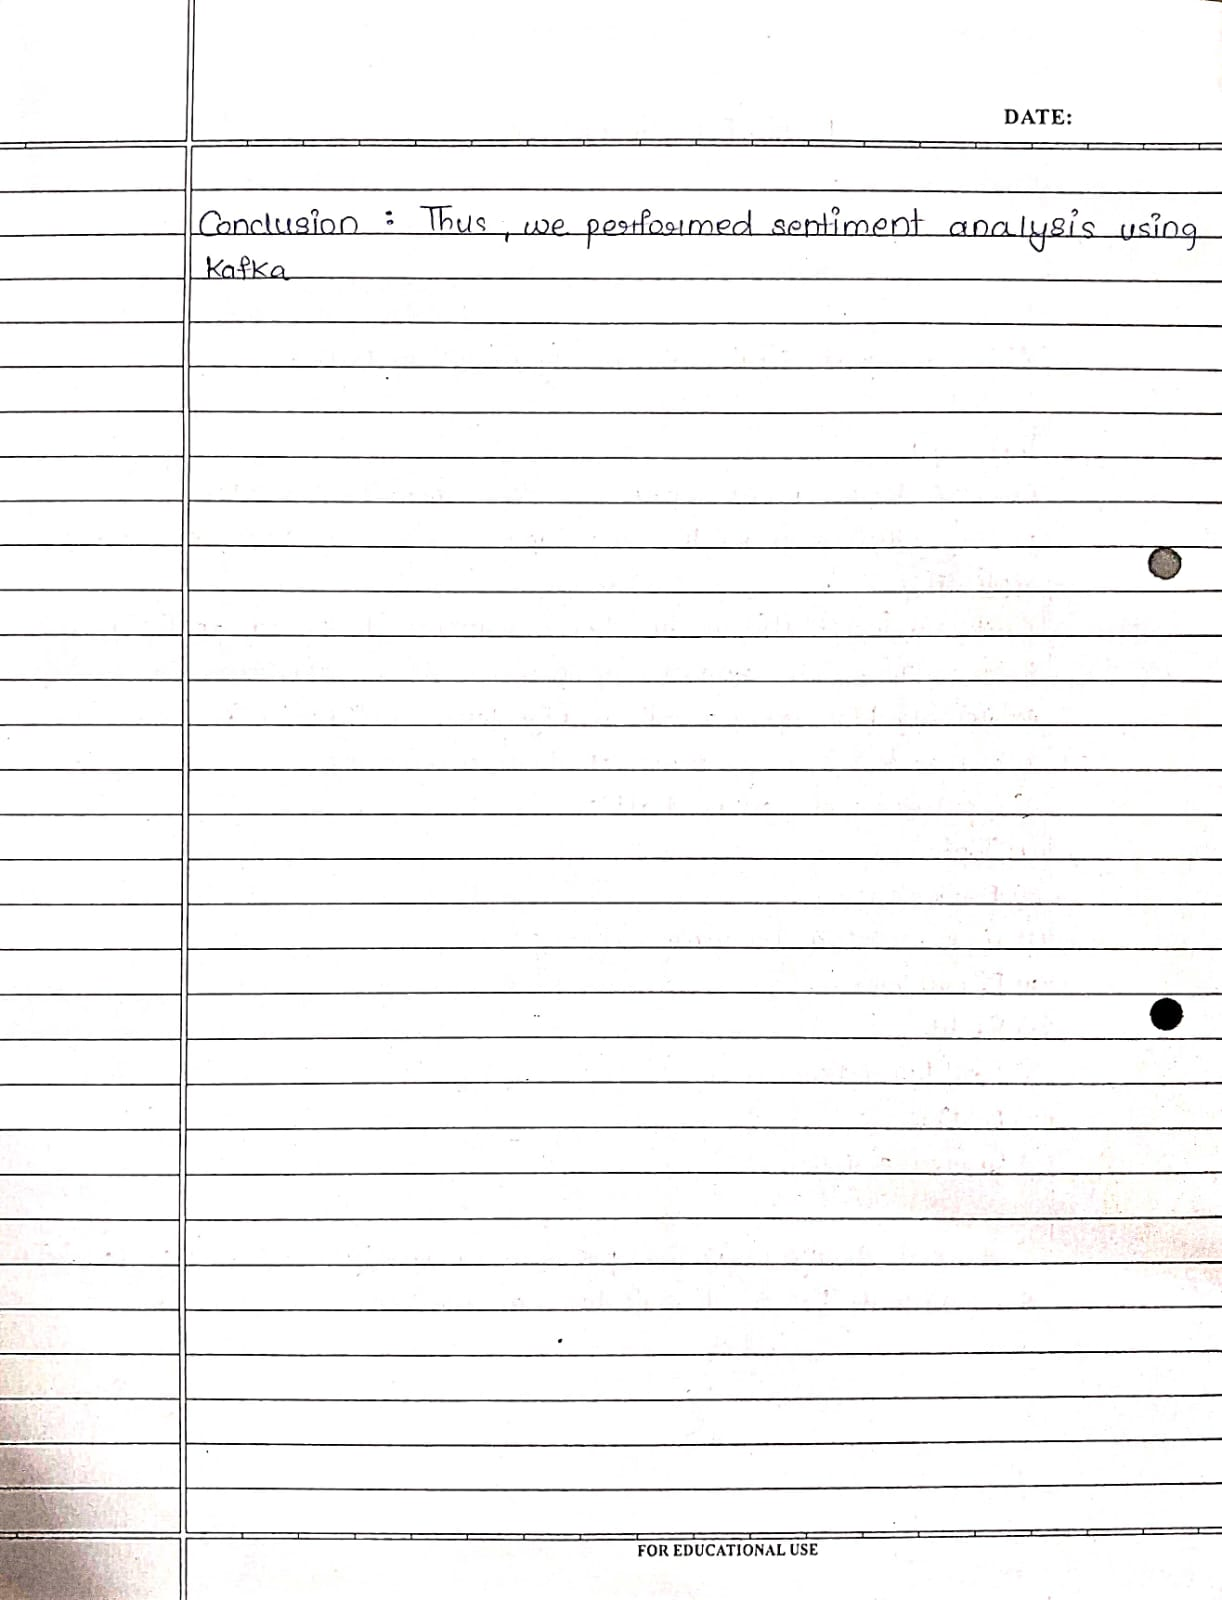 DATE:
Conclusion : Thus, we performed sentiment analysis using
Kafka
FOR EDUCATIONAL USE